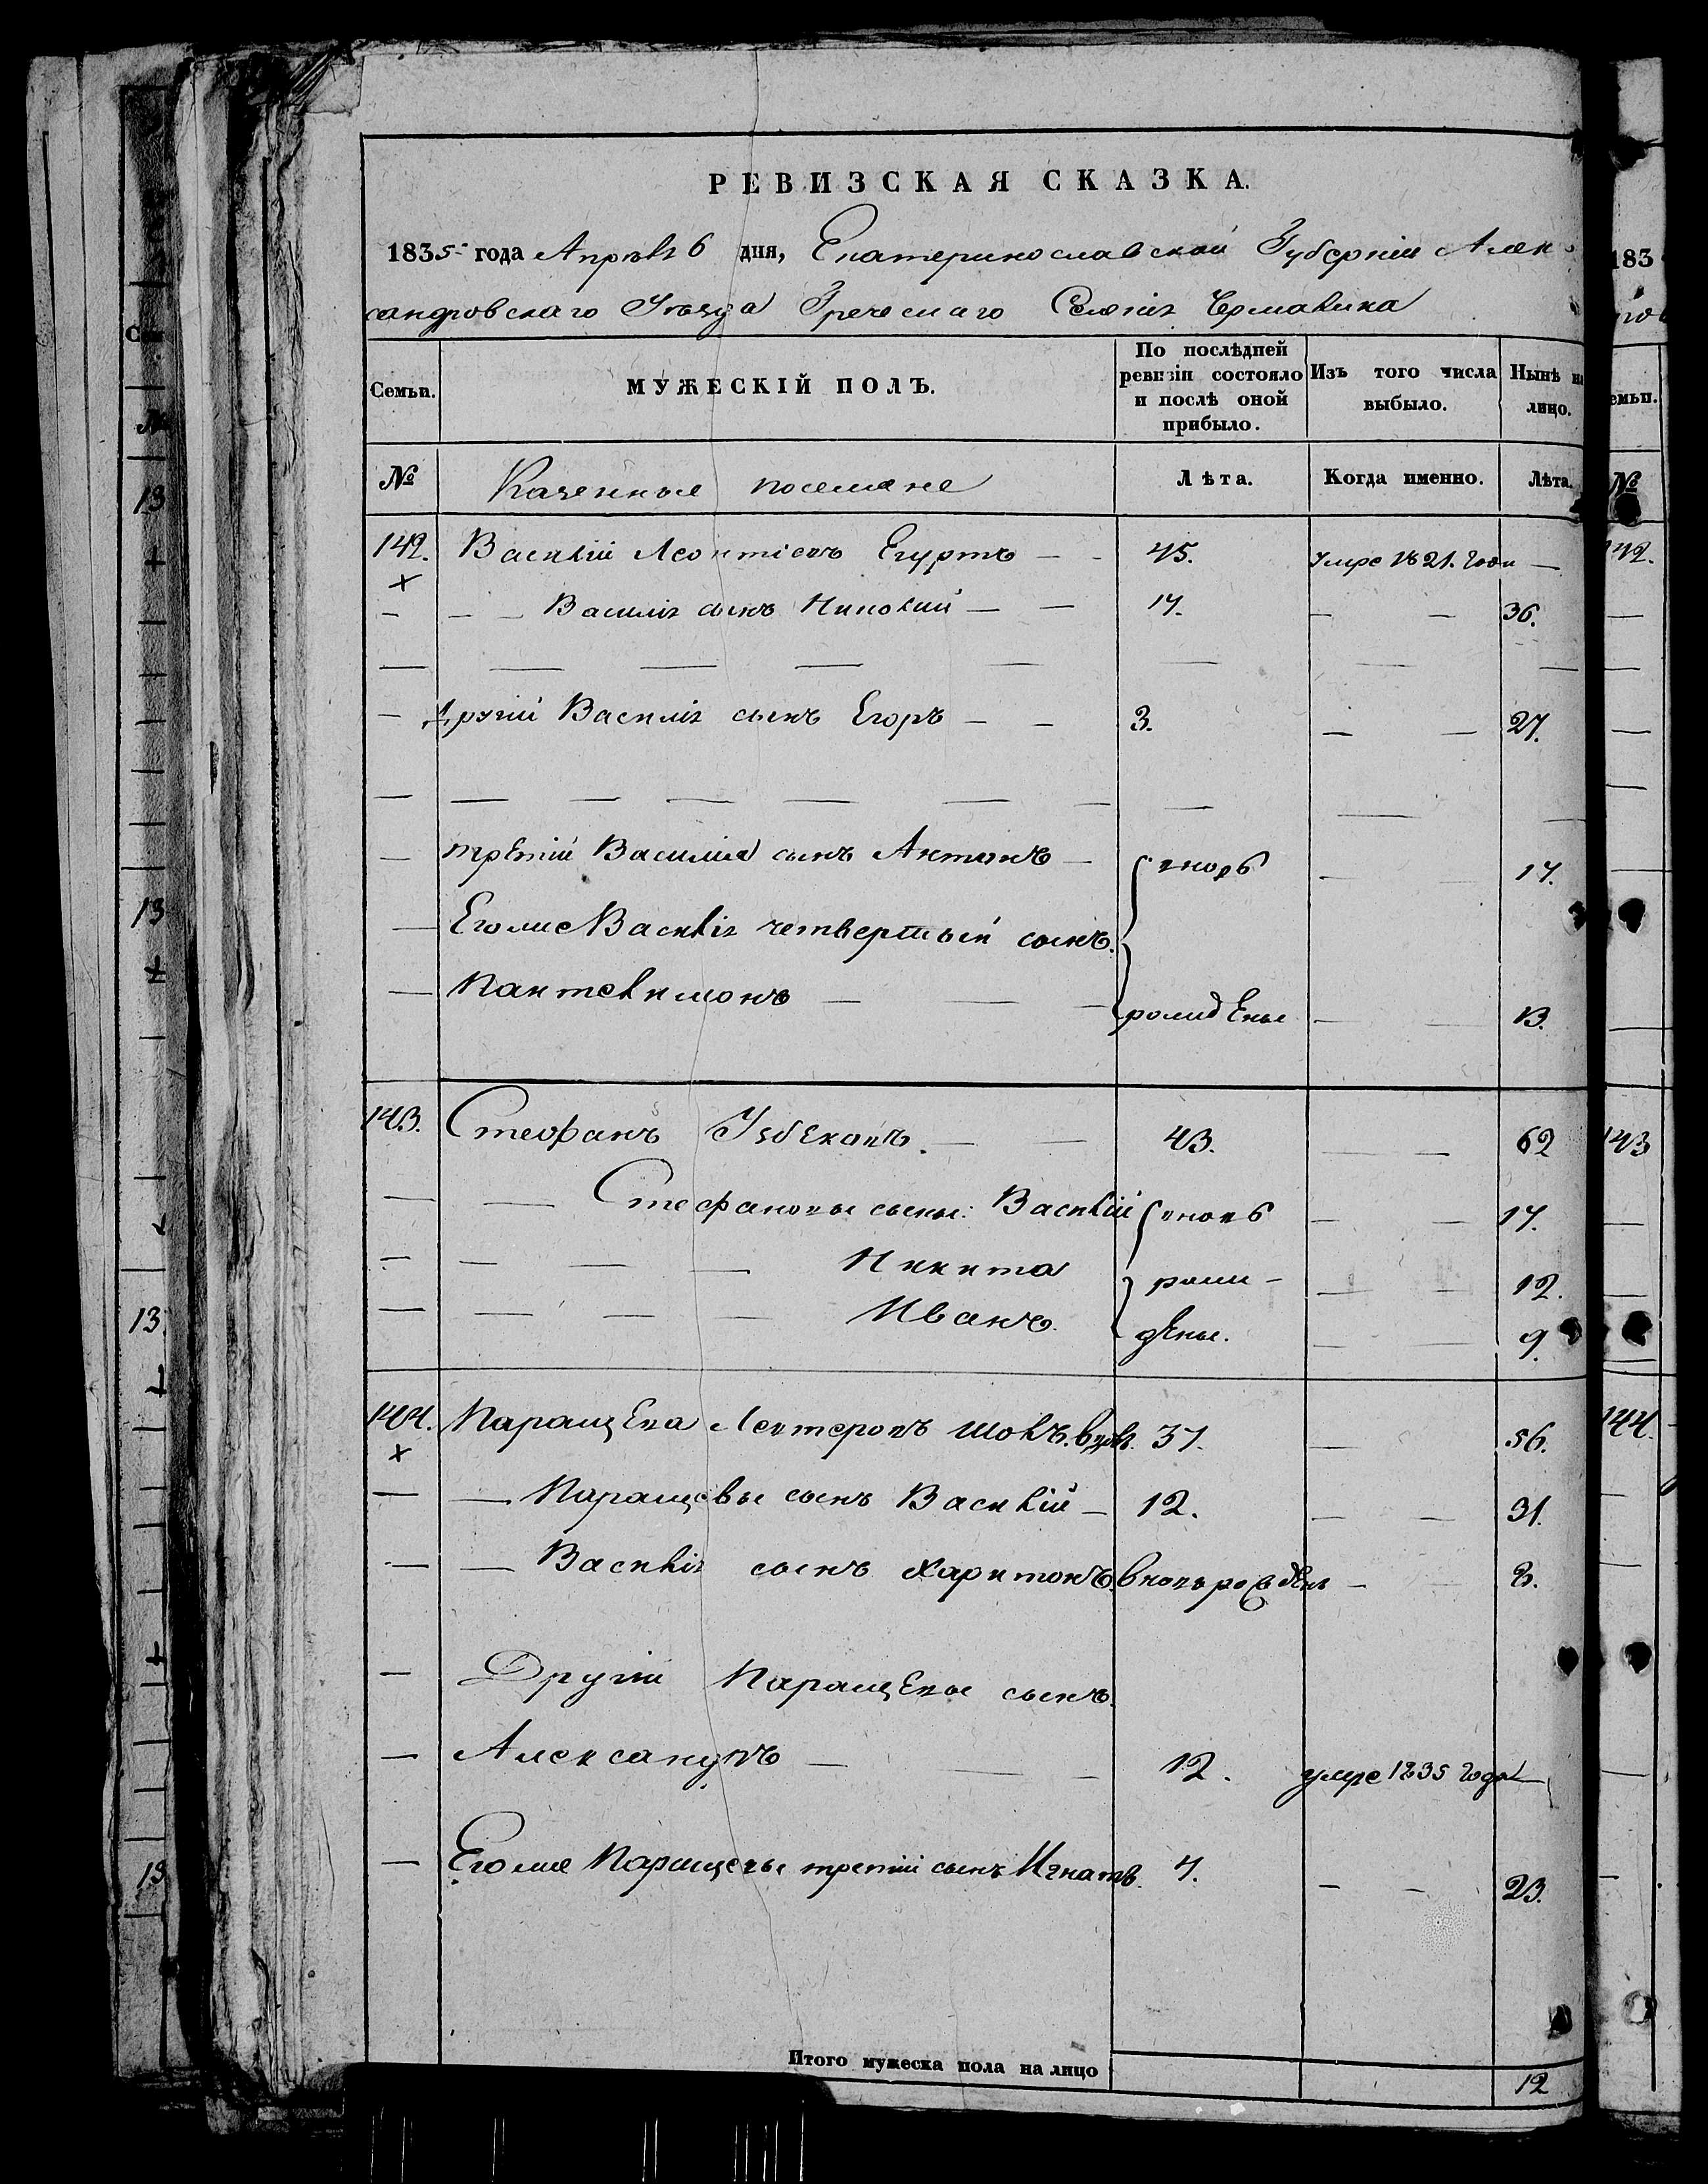 РЕВИЗСКАЯ СКАЗКА.
1835 года Апрѣля 6 дня, Екатеринославской Губерніи Алек-
сандровскаго Уѣзда Греческаго Селенія Чермалика
Семьи. МУЖЕСКІЙ ПОЛЪ. По послѣдней ревизіи состояло и послѣ оной прибыло. Изъ того числа выбыло. Нынѣ на лицо.
№ Казенные поселяне Лѣта. Когда именно. Лѣта.
142. Василій Леонтіевъ Егуртъ — — 45. Умре 1821. Года —
— — — Василія сынъ Николай — — 17. — — 36.
— Другій Василія сынъ Егоръ — — 3. — — 27.
— третій Василія сынъ Антонъ — вновъ — — 17.
— Его же Василія четвертый сынъ.
— Пантелимонъ — — — рожденые — — 13.
143. Стефанъ Узбекопъ. — — 43. — — 62
— — Стефановы сыны: Василій вновъ — — 17.
— — — — Никита рож- — — 12.
— — — — — Иванъ. деные. — — 9.
144. Паращева Лефтеровъ шолъ. 37. — — 56.
— — Паращевы сынъ Василій — 12. — — 31.
— — Василія сынъ Харитонъ. вновъ рожденъ — 2.
— Другій Паращевы сынъ.
— Александръ — — — 12. умре 1835 года —
— Его же Паращевы третій сынъ Игнатъ. 4. — — 23.
Итого мужеска пола на лицо 12
183
емьи.
№
142.
143
144.
13
13
13
13